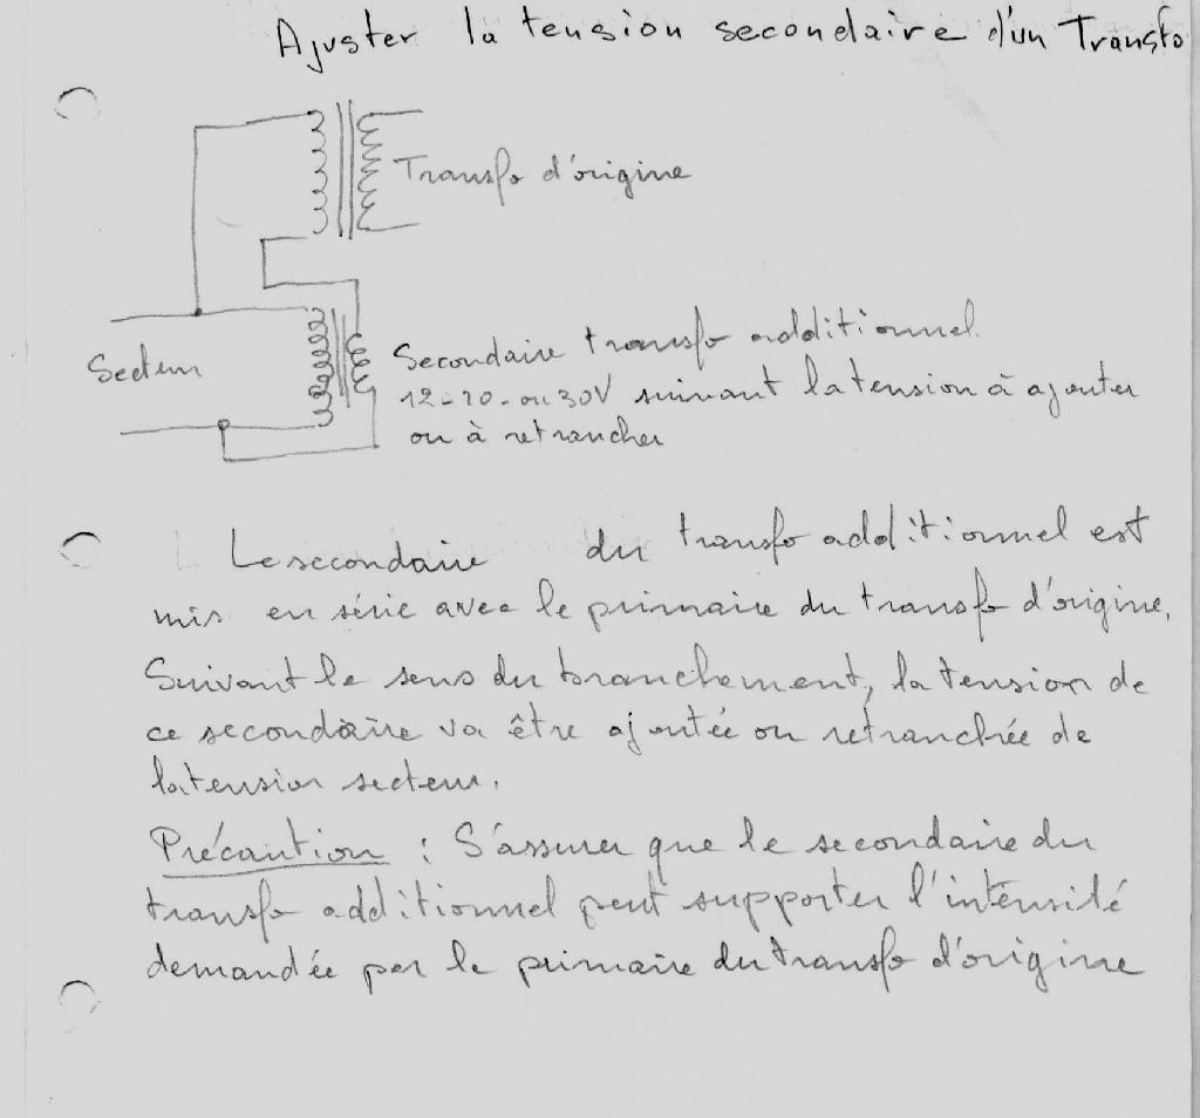 Ajuster la tension secondaire d'un Transfo
Transfo d'origine
Secteur
Secondaire transfo additionnel.
12-20-ou 30V suivant la tension à ajouter
ou à retrancher
Le secondaire du transfo additionnel est
mis en série avec le primaire du transfo d'origine.
Suivant le sens du branchement, la tension de
ce secondaire va être ajoutée ou retranchée de
la tension secteur.
Précaution : S'assurer que le secondaire du
transfo additionnel peut supporter l'intensité
demandée par le primaire du transfo d'origine